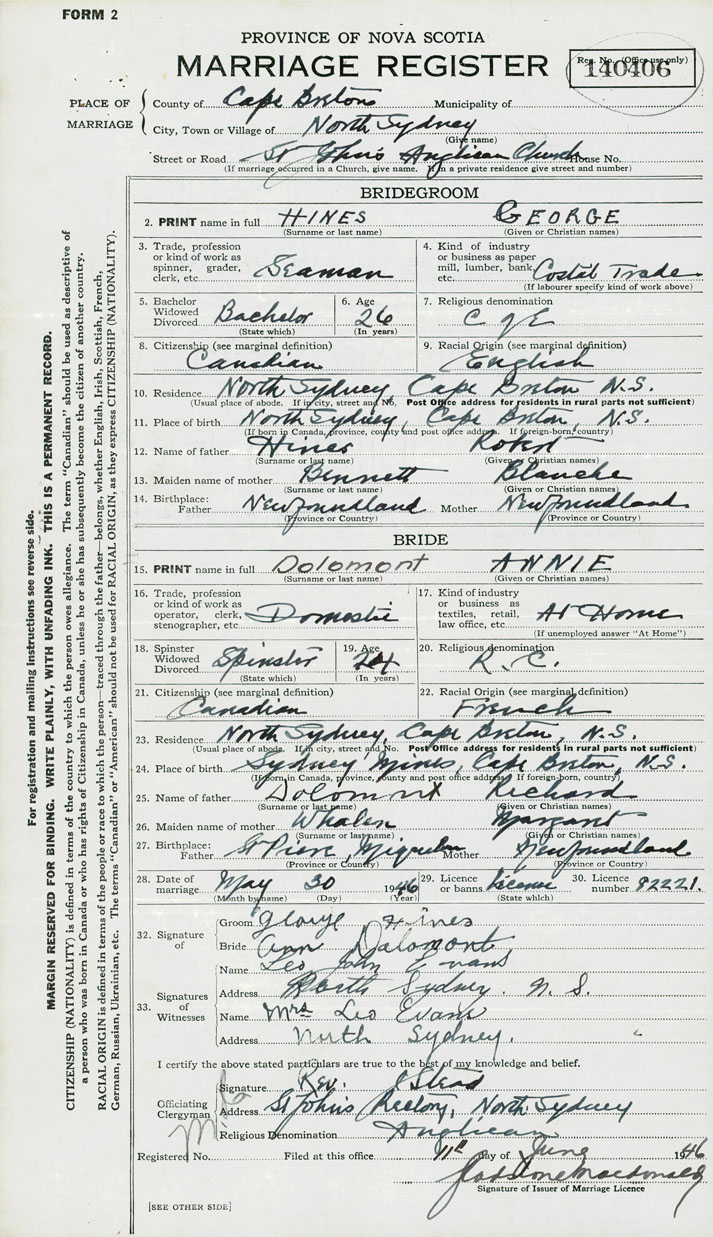 FORM 2
PROVINCE OF NOVA SCOTIA
MARRIAGE REGISTER
Reg. No. (Office use only)
140406
PLACE OF MARRIAGE
County of Cape Breton Municipality of
City, Town or Village of North Sydney
(Give name)
Street or Road St John's Anglican Church House No.
(If marriage occurred in a Church, give name. If in a private residence give street and number)
BRIDEGROOM
2. PRINT name in full HINES GEORGE
(Surname or last name) (Given or Christian names)
3. Trade, profession or kind of work as spinner, grader, clerk, etc. Seaman
4. Kind of industry or business as paper mill, lumber, bank, etc. Costal Trade
(If labourer specify kind of work above)
5. Bachelor Widowed Divorced Bachelor
(State which)
6. Age 26
(In years)
7. Religious denomination C of E
8. Citizenship (see marginal definition) Canadian
9. Racial Origin (see marginal definition) English
10. Residence North Sydney, Cape Breton N.S.
(Usual place of abode. If in city, street and No. Post Office address for residents in rural parts not sufficient)
11. Place of birth North Sydney, Cape Breton, N.S.
(If born in Canada, province, county and post office address. If foreign-born, country)
12. Name of father Hines Robert
(Surname or last name) (Given or Christian names)
13. Maiden name of mother Bennett Blanche
(Surname or last name) (Given or Christian names)
14. Birthplace: Father Newfoundland Mother Newfoundland
(Province or Country) (Province or Country)
BRIDE
15. PRINT name in full Dolomont ANNIE
(Surname or last name) (Given or Christian names)
16. Trade, profession or kind of work as operator, clerk, stenographer, etc Domestic
17. Kind of industry or business as textiles, retail, law office, etc At Home
(If unemployed answer "At Home")
18. Spinster Widowed Divorced Spinster
(State which)
19. Age 24
(In years)
20. Religious denomination R.C.
21. Citizenship (see marginal definition) Canadian
22. Racial Origin (see marginal definition) French
23. Residence North Sydney, Cape Breton, N.S.
(Usual place of abode. If in city, street and No. Post Office address for residents in rural parts not sufficient)
24. Place of birth Sydney Mines, Cape Breton, N.S.
(If born in Canada, province, county and post office address. If foreign-born, country)
25. Name of father Dolomont Richard
(Surname or last name) (Given or Christian names)
26. Maiden name of mother Whalen Margaret
(Surname or last name) (Given or Christian names)
27. Birthplace: Father St Pierre, Miquelon Mother Newfoundland
(Province or Country) (Province or Country)
28. Date of marriage May 30 1946
(Month by name) (Day) (Year)
29. Licence or banns License
(State which)
30. Licence number 82221.
32. Signature of
Groom George Hines
Bride Ann Dolomont
33. Signatures of Witnesses
Name Leo John Evans
Address North Sydney. N.S.
Name Mrs Leo Evans
Address North Sydney.
I certify the above stated particulars are true to the best of my knowledge and belief.
Officiating Clergyman
Signature Rev. J Stead
Address St John's Rectory, North Sydney
Religious Denomination Anglican
Registered No. Filed at this office 11th day of June 1946
Signature of Issuer of Marriage Licence
[SEE OTHER SIDE]
For registration and mailing instructions see reverse side.
MARGIN RESERVED FOR BINDING. WRITE PLAINLY, WITH UNFADING INK. THIS IS A PERMANENT RECORD.
CITIZENSHIP (NATIONALITY) is defined in terms of the country to which the person owes allegiance. The term "Canadian" should be used as descriptive of
a person who was born in Canada or who has rights of Citizenship in Canada, unless he or she has subsequently become the citizen of another country.
RACIAL ORIGIN is defined in terms of the people or race to which the person—traced through the father—belongs, whether English, Irish, Scottish, French,
German, Russian, Ukrainian, etc. The terms "Canadian" or "American" should not be used for RACIAL ORIGIN, as they express CITIZENSHIP (NATIONALITY).